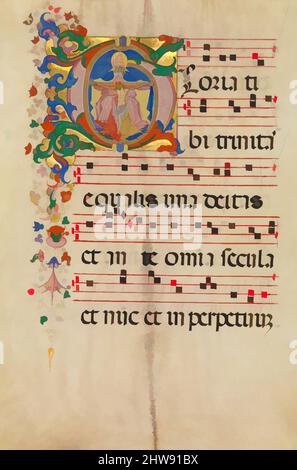 Gloria ti
bi trinita
equalis una deitas
et an te omia secula
et nuc et in perpetuuz
alamy
Image ID: 2HW91BX
www.alamy.com